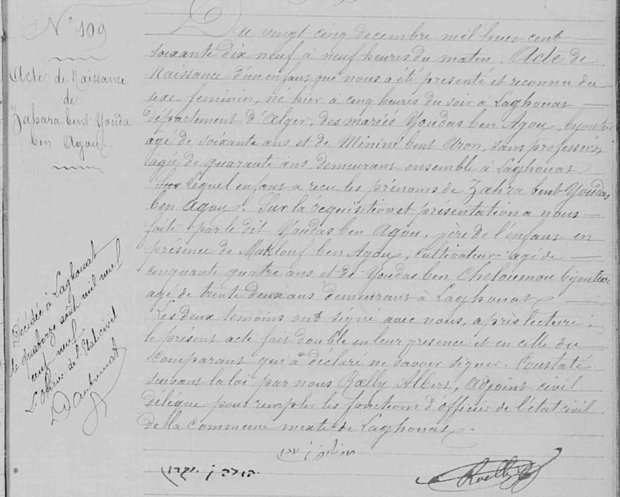 N° 109
Acte de Naissance
de
Zahara bent Youda
ben Agou.
Décédée à Laghouat
le quatorze août mil neuf
cent neuf
L'officier de l'Etat civil
Du vingt cinq décembre mil huit cent
soixante dix neuf à neuf heures du matin. Acte de
Naissance d'un enfant que nous a été présenté et reconnu du
sexe féminin, né hier à cinq heures du soir à Laghouat
département d'Alger, des mariés Youdas ben Agou, bijoutier
agé de soixante ans et de Minini bent Aron, sans profession,
agée de quarante ans demeurant ensemble à Laghouat
lequel enfant a reçu les prénoms de Zahra bent Youdas
ben Agou. Sur la réquisition et présentation a nous
faite par le dit Youdas ben Agou, père de l'enfant en
présence de Maklouf ben Agou, cultivateur agé de
cinquante quatre ans et de Youdas ben Cheloumou bijoutier
agé de trente deux ans demeurant à Laghouat
res deux témoins ont signé avec nous, après lecture,
le présent acte fait double en leur présence et en celle du
Comparant qui a déclaré ne savoir signer. Constaté
suivant la loi par nous Albert, adjoint civil
délégué pour remplir les fonctions d'officier de l'état civil
de la Commune mixte de Laghouat.